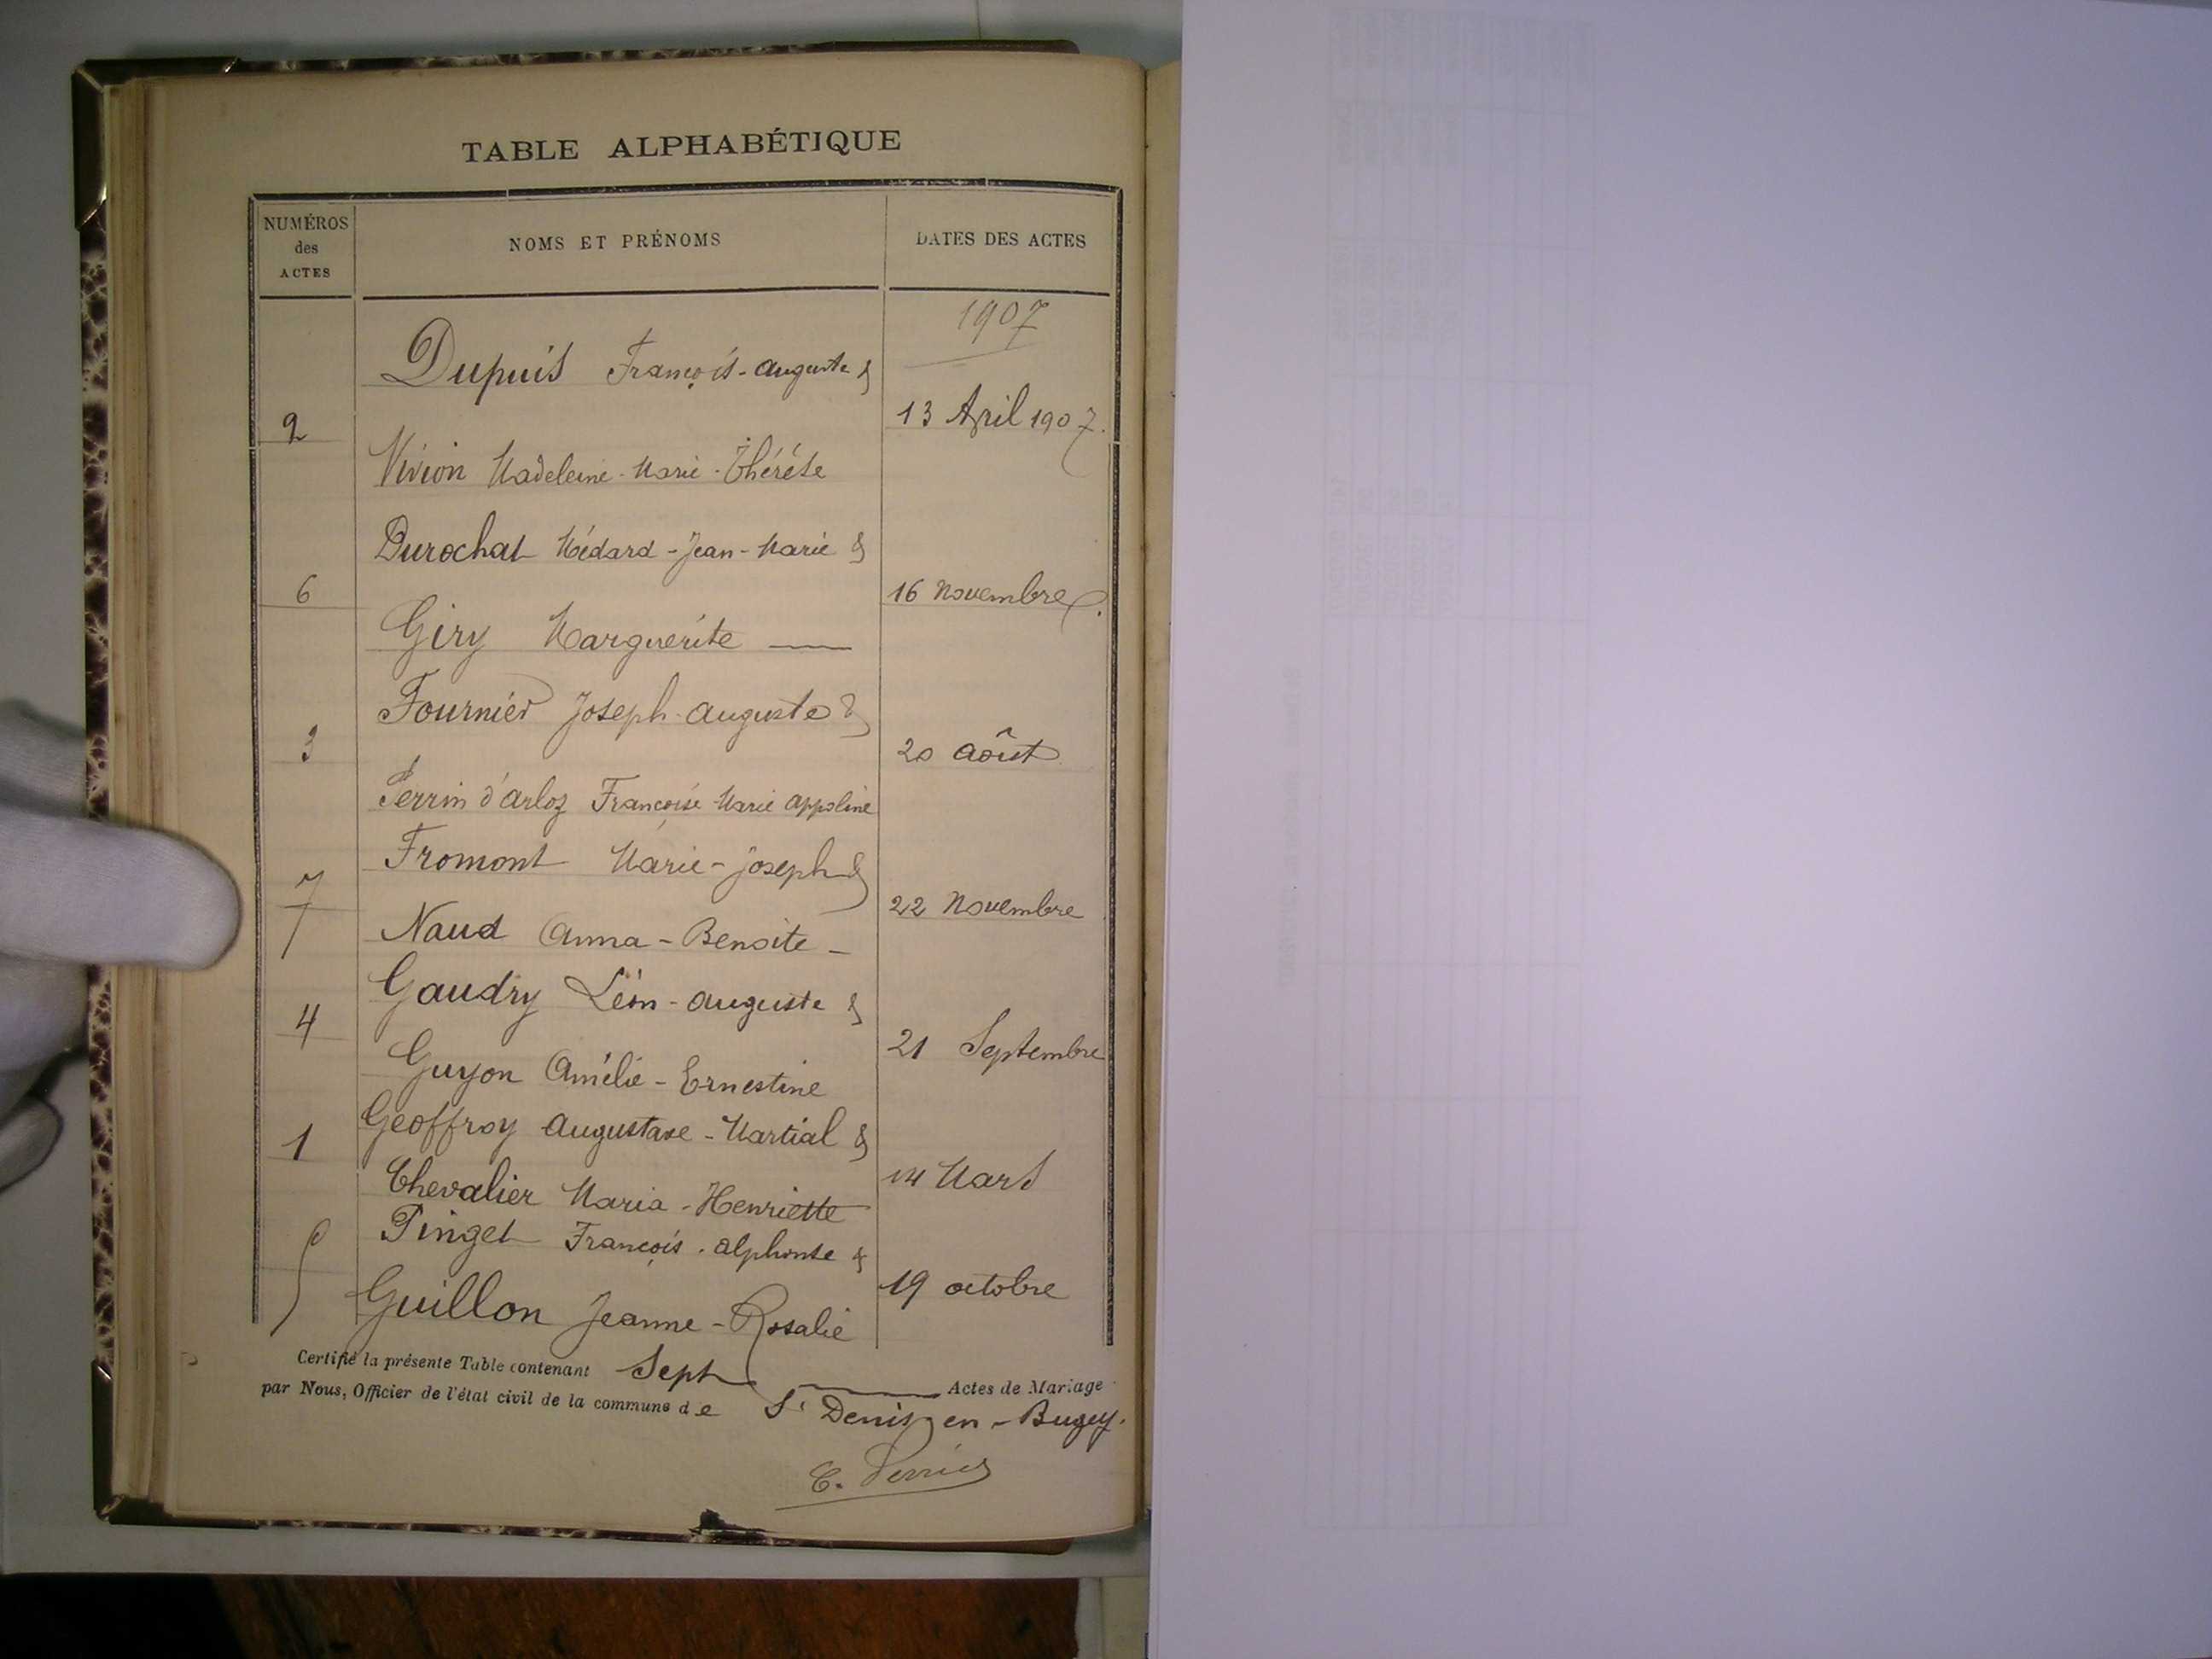 TABLE ALPHABÉTIQUE
NUMÉROS
des
ACTES
NOMS ET PRÉNOMS
DATES DES ACTES
1907
Dupuis François-auguste &
2
13 Avril 1907.
Vivion Madeleine-Marie-Thérése
Durochat Médard-Jean-Marie &
6
16 Novembre
Giry Marguerite
Fournier Joseph-auguste &
3
20 Août
Perrin d'arloz Francoise Marie appoline
Fromont Marie-joseph &
7
22 Novembre
Naud Anna-Benoite
Gaudry Léon-auguste &
4
21 Septembre
Guyon Amélie-Ernestine
Geoffroy Augustave-Martial &
1
14 Mars
Chevalier Maria-Henriette
Pinget François-alphonse &
5
19 octobre
Guillon Jeanne-Rosalie
Certifié la présente Table contenant Sept Actes de Mariage
par Nous, Officier de l'état civil de la commune de St Denis en-Bugey.